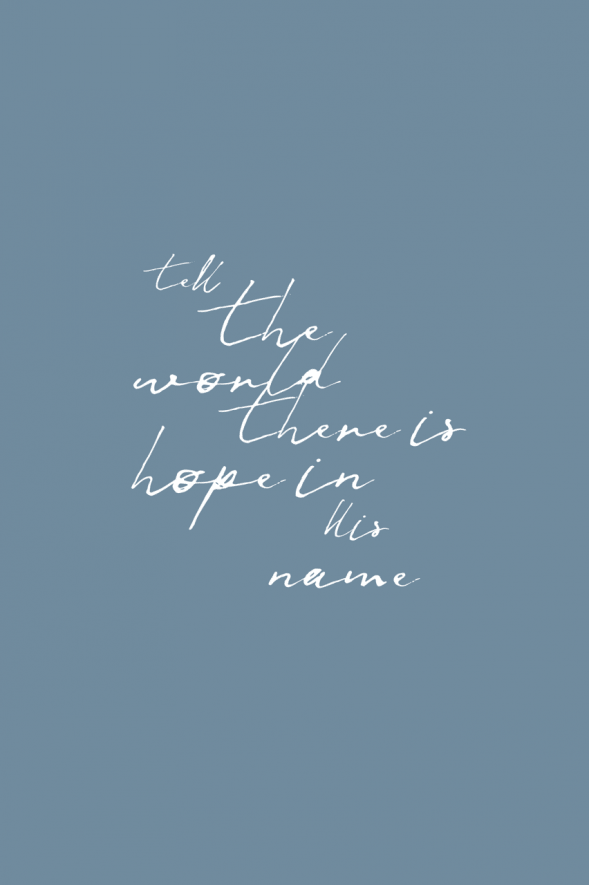 tell
the
world
there is
hope in
His
name